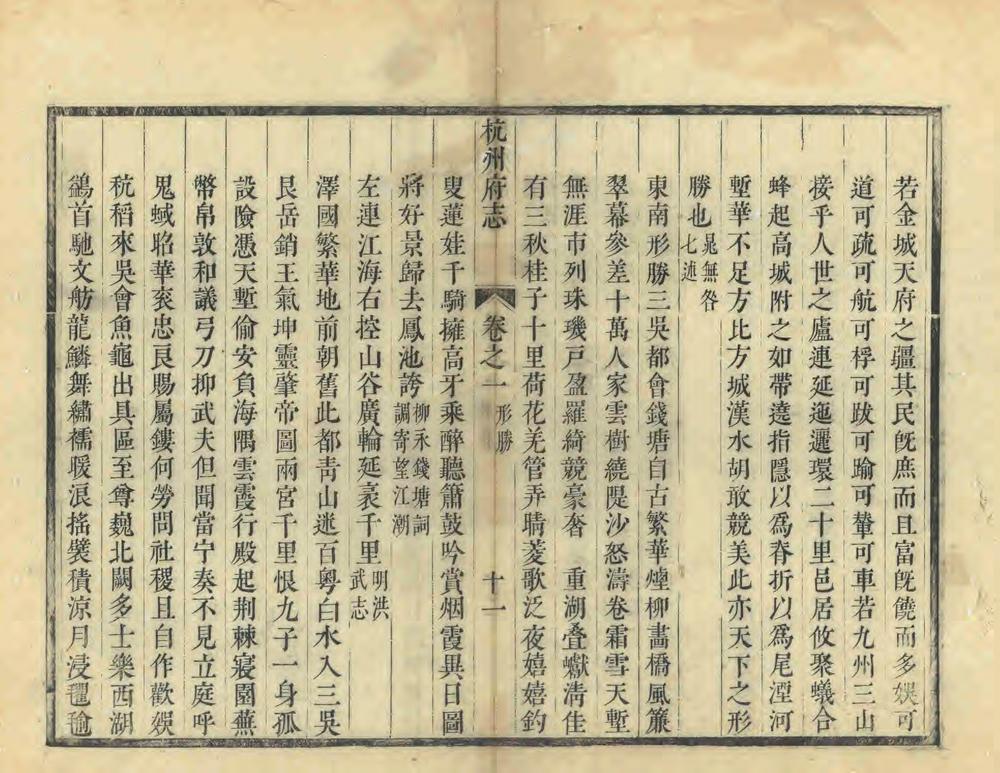 若金城天府之疆其民旣庶而且富旣饒而多娛可
道可疏可航可桴可跋可踰可輦可車若九州三山
接乎人世之廬連延迤邐環二十里邑居攸聚蟻合
蜂起高城附之如帶遶指隱以爲脊折以爲尾湮河
塹華不足方比方城漢水胡敢競美此亦天下之形
勝也晁無咎七述
東南形勝三吳都會錢塘自古繁華煙柳畵橋風簾
翠幕參差十萬人家雲樹繞隄沙怒濤卷霜雪天塹
無涯市列珠璣戸盈羅綺競豪奢　重湖叠巘淸佳
有三秋桂子十里荷花羌管弄晴菱歌泛夜嬉嬉釣
杭州府志　卷之一　形勝　十一
叟蓮娃千騎擁高牙乘醉聽簫鼓吟賞烟霞異日圖
將好景歸去鳳池誇柳永錢塘詞調寄望江潮
左連江海右控山谷廣輪延袤千里明洪武志
澤國繁華地前朝舊此都靑山迷百粤白水入三吳
艮岳銷王氣坤靈肇帝圖兩宮千里恨九子一身孤
設險憑天塹偷安負海隅雲霞行殿起荆棘寢園蕪
幣帛敦和議弓刀抑武夫但聞當宁奏不見立庭呼
鬼蜮昭華衮忠良賜屬鏤何勞問社稷且自作歡娛
秔稻來吳會魚龜出具區至尊巍北闕多士樂西湖
鷁首馳文舫龍鱗舞繡襦暖浪搖襞積涼月浸氍毹